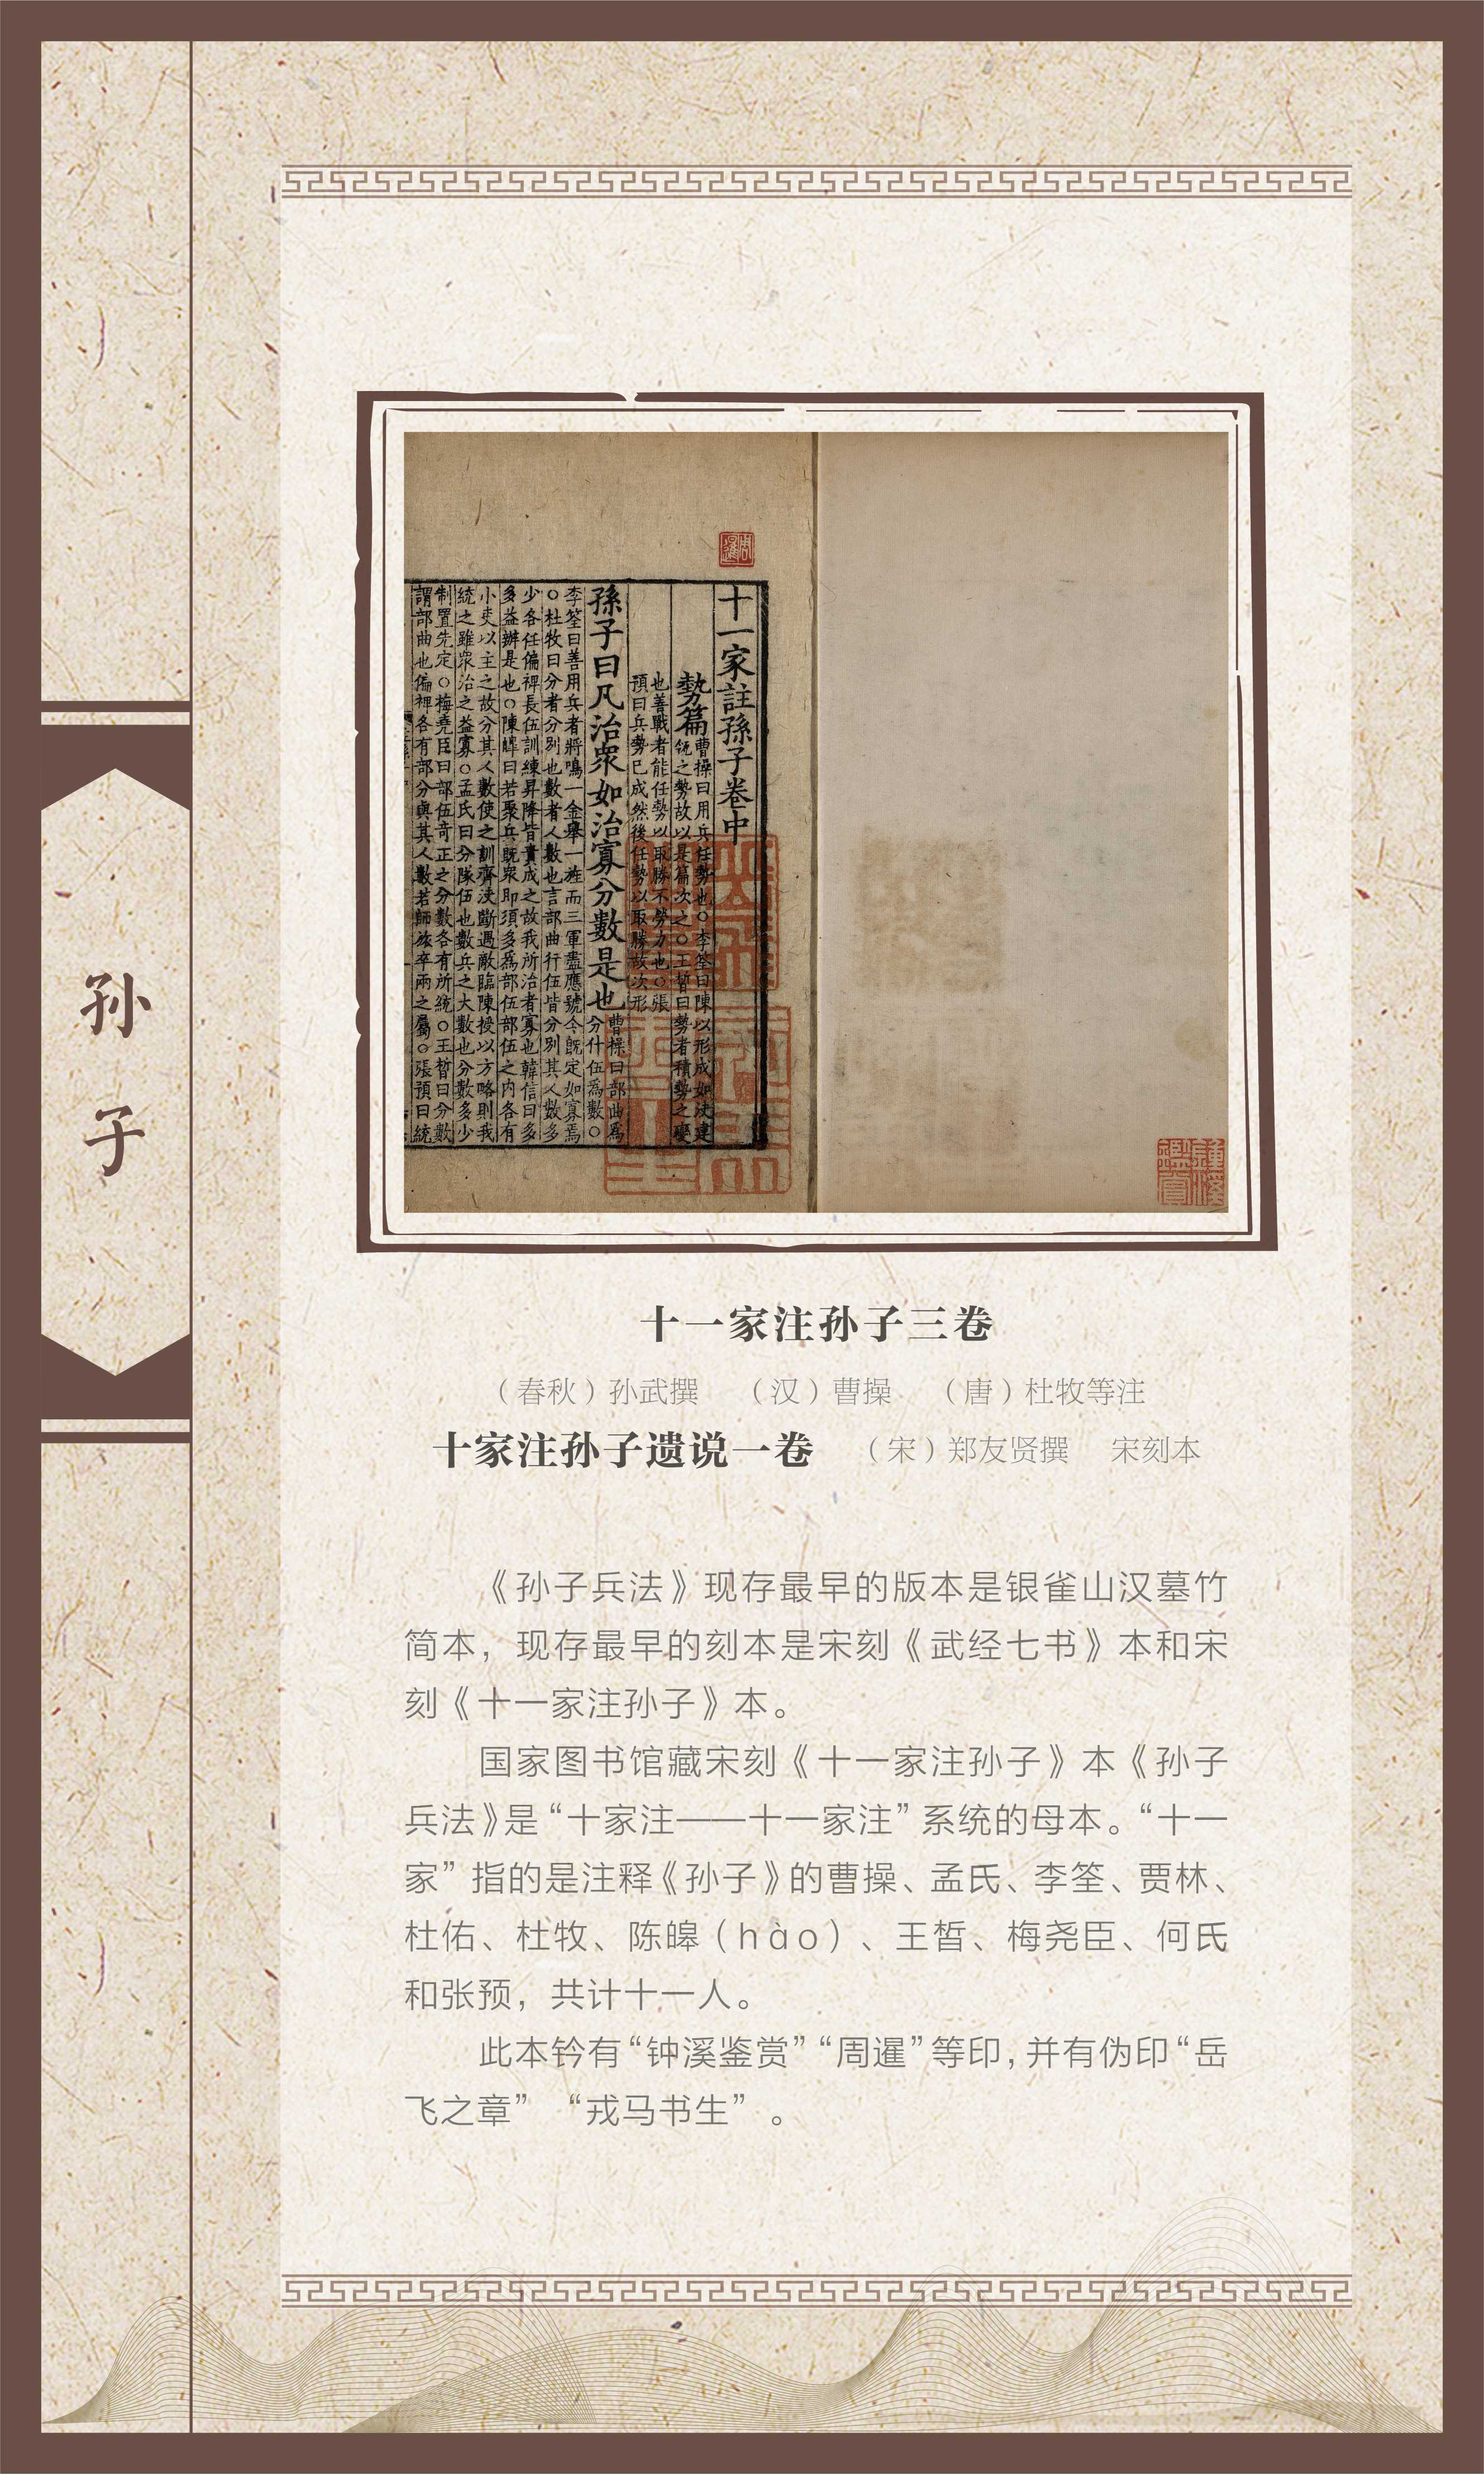 孙子
十一家註孫子卷中
勢篇
曹操曰用兵任勢也○李筌曰陳以形成如決建
瓴之勢故以是篇次之○王晳曰勢者積勢之變
也善戰者能任勢以取勝不勞力也○張
預曰兵勢已成然後任勢以取勝故次形
孫子曰凡治衆如治寡分數是也
曹操曰部曲爲
分什伍爲數○
李筌曰善用兵者將鳴一金舉一旌而三軍盡應號令既定如寡焉
○杜牧曰分者分别也數者人數也言部曲行伍皆分别其人數多
少各任偏裨長伍訓練昇降皆責成之故我所治者寡也韓信曰多
多益辦是也○陳皥曰若聚兵既衆即須多爲部伍部伍之内各有
小吏以主之故分其人數使之訓齊決斷遇敵臨陳授以方略則我
統之雖衆治之益寡○孟氏曰分隊伍也數兵之大數也分數多少
制置先定○梅堯臣曰部伍奇正之分數各有所統○王晳曰分數
謂部曲也偏裨各有部分與其人數若師旅卒兩之屬○張預曰統
周暹
鍾溪鑑賞
十一家注孙子三卷
（春秋）孙武撰 （汉）曹操 （唐）杜牧等注
十家注孙子遗说一卷 （宋）郑友贤撰 宋刻本
《孙子兵法》现存最早的版本是银雀山汉墓竹
简本，现存最早的刻本是宋刻《武经七书》本和宋
刻《十一家注孙子》本。
国家图书馆藏宋刻《十一家注孙子》本《孙子
兵法》是“十家注——十一家注”系统的母本。“十一
家”指的是注释《孙子》的曹操、孟氏、李筌、贾林、
杜佑、杜牧、陈皞（hào）、王皙、梅尧臣、何氏
和张预，共计十一人。
此本钤有“钟溪鉴赏”“周暹”等印，并有伪印“岳
飞之章” “戎马书生”。